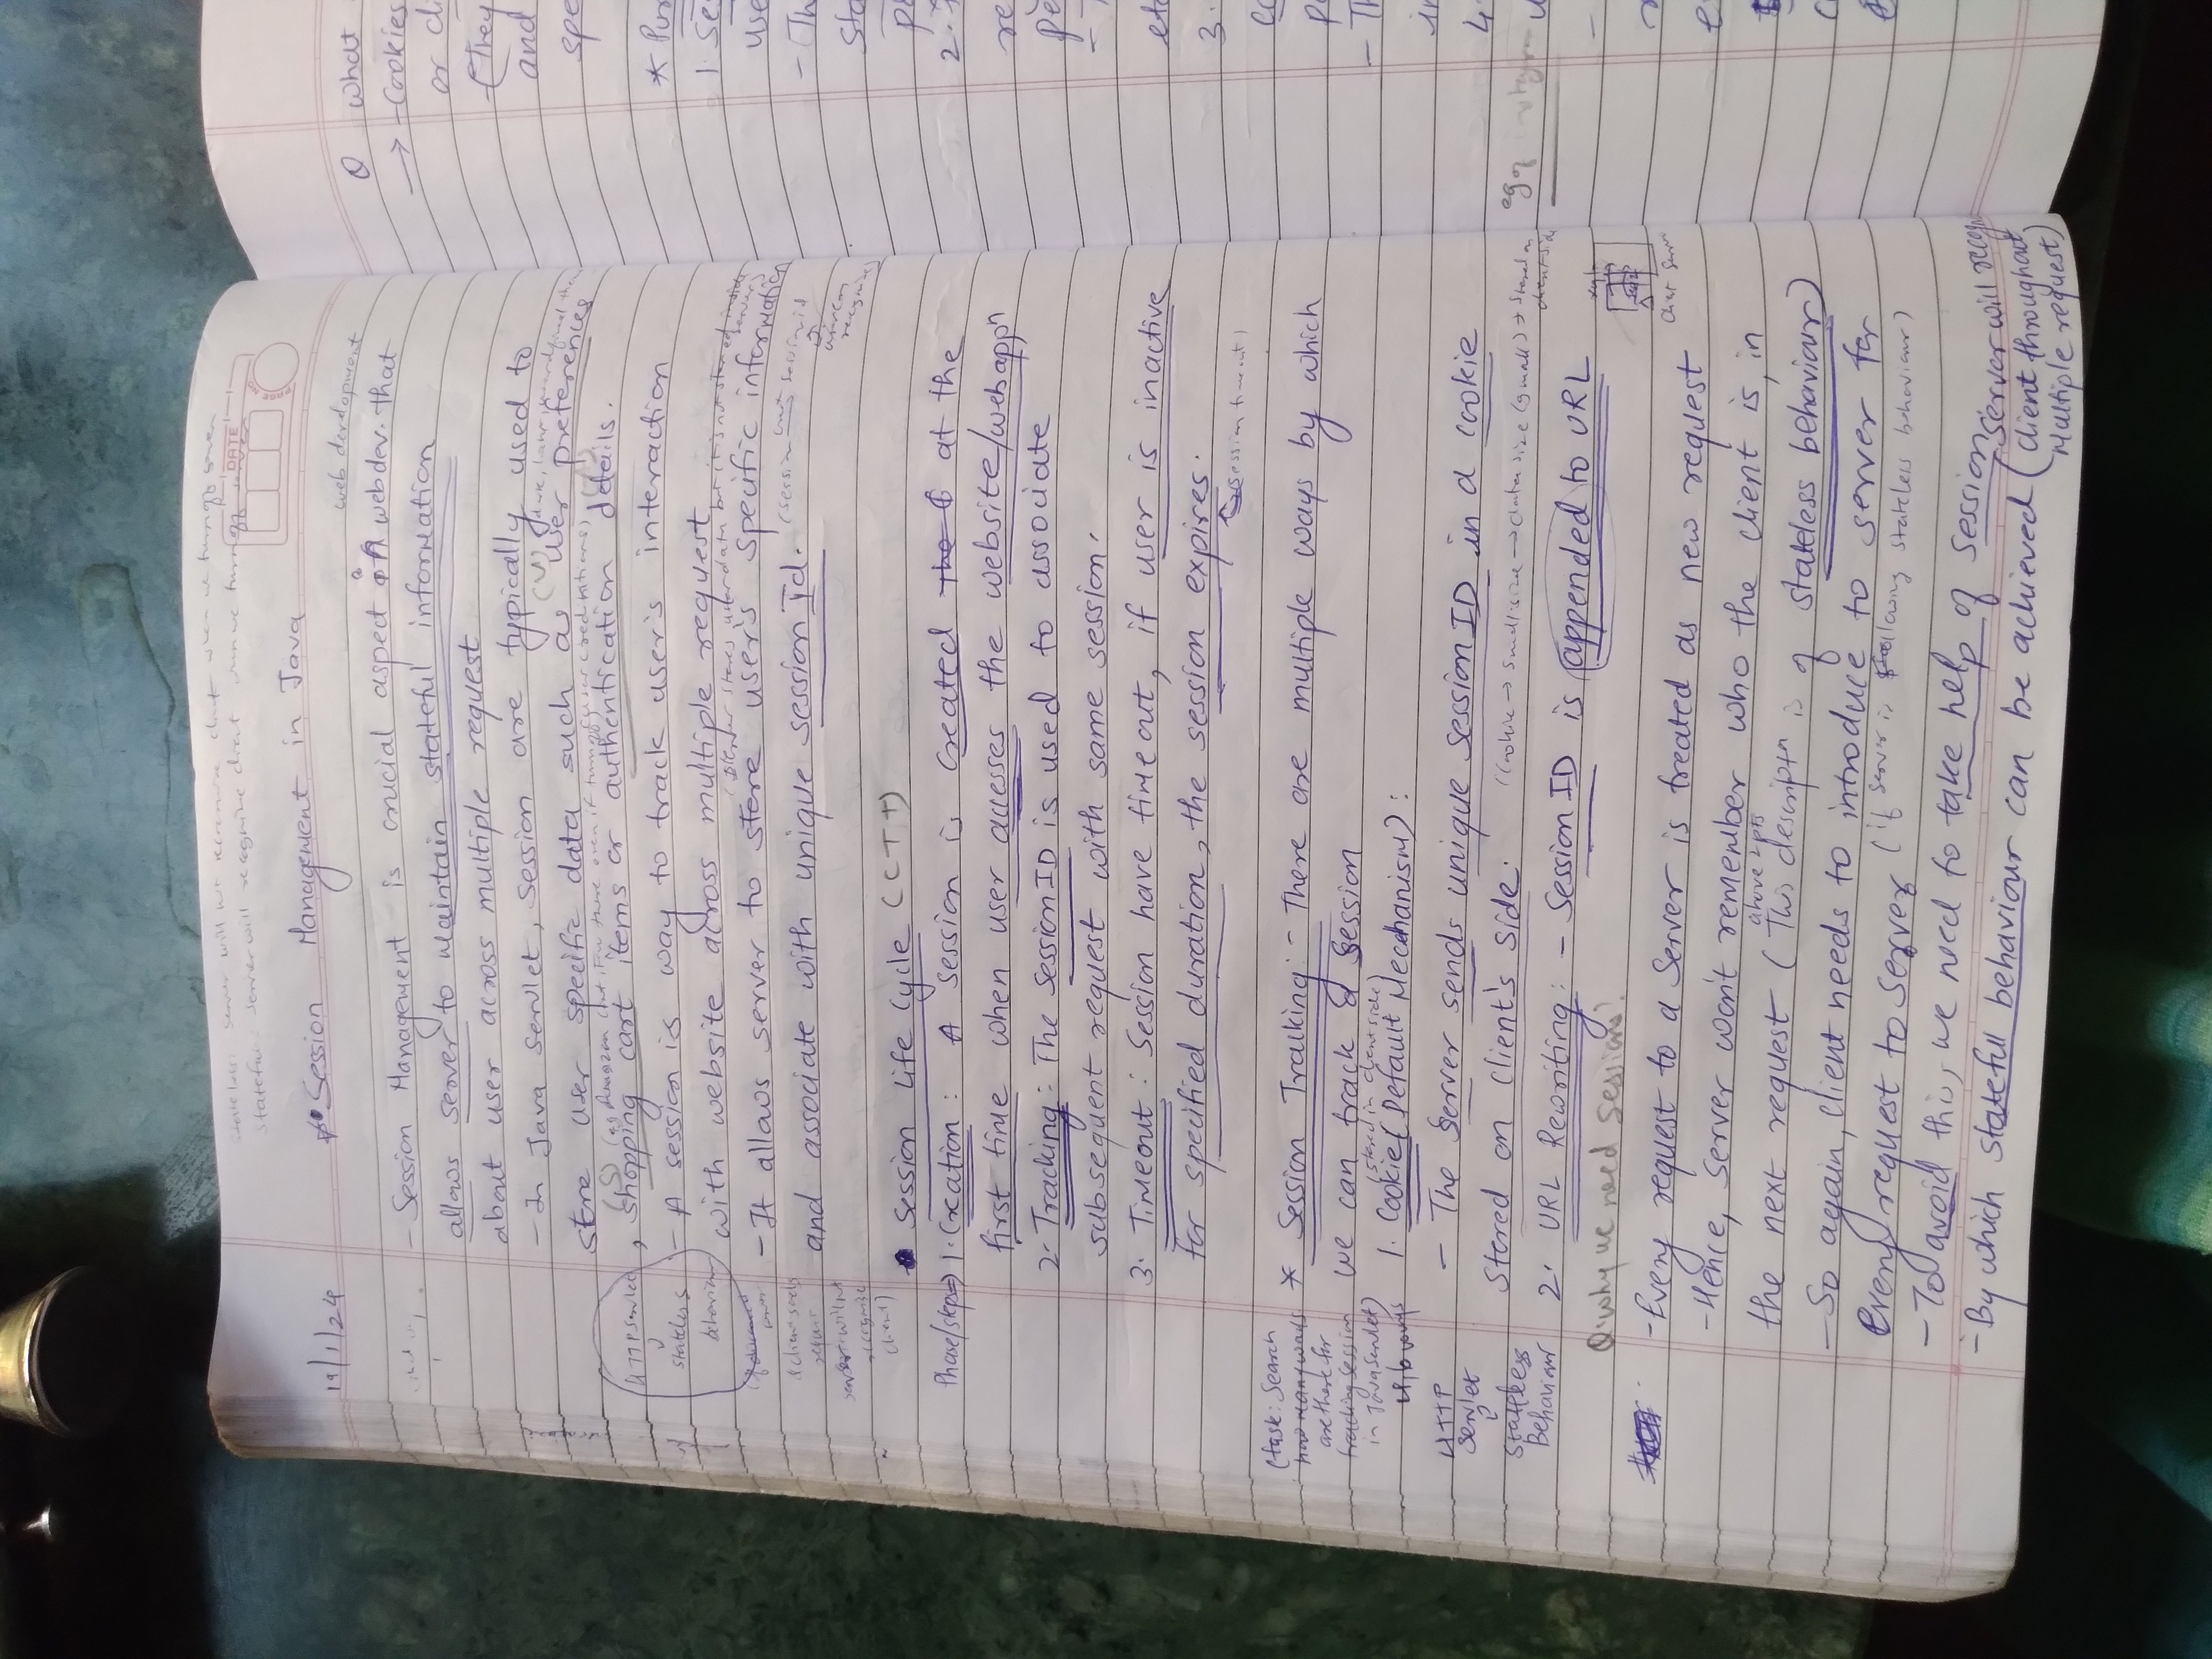 Stateless: server will not recognise client when we turn off server
Stateful: server will recognize client when we turn off server
DATE
PAGE NO.
19/1/24
Session Management in Java
web development
- Session Management is crucial aspect of web dev. that
allows server to maintain stateful information
about user across multiple request
- In Java Servlet, session are typically used to
store user specific data such as user preferences
, shopping cart items or authentication details.
- A session is way to track user's interaction
with website across multiple request
- It allows server to store user's specific information
and associate with unique session Id.
HTTP Servlet
stateless
behaviour
& client sends
request
server will not
recognize
client)
Session Life Cycle (CTT)
Phase/steps⇒ 1. Creation: A session is created at the
first time when user accesses the website/webappⁿ
2. Tracking: The Session ID is used to associate
subsequent request with same session.
3. Timeout: Session have timeout, if user is inactive
for specified duration, the session expires.
(session timeout)
(task: Search
how many ways
are there for
tracking session
in Java Servlet)
* Session Tracking:- There are multiple ways by which
we can track a session
(stored in client side)
1. Cookie (Default Mechanism):
- The Server sends unique session ID in a cookie
stored on client's side.
(Cookie → small size → data size (small) → stored on
client side
HTTP
Servlet
Stateless
Behaviour
2. URL Rewriting: - Session ID is appended to URL
Q. why we need sessions?
Client Server
- Every request to a Server is treated as new request
- Hence, server won't remember who the client is, in
above 2 pts
the next request (This descriptⁿ is of stateless behaviour)
- So again, client needs to introduce to server for
every request to server (if server is following stateless behaviour)
- To avoid this, we need to take help of session
- By which stateful behaviour can be achieved (server will recogn
client throughout
multiple request)
Q what
→ - Cookies
or cli
- (They
and
spe
* Pur
1. Se
use
- (Th
sto
2.
re
pe
etc
3.
- Th
in
4
eg of